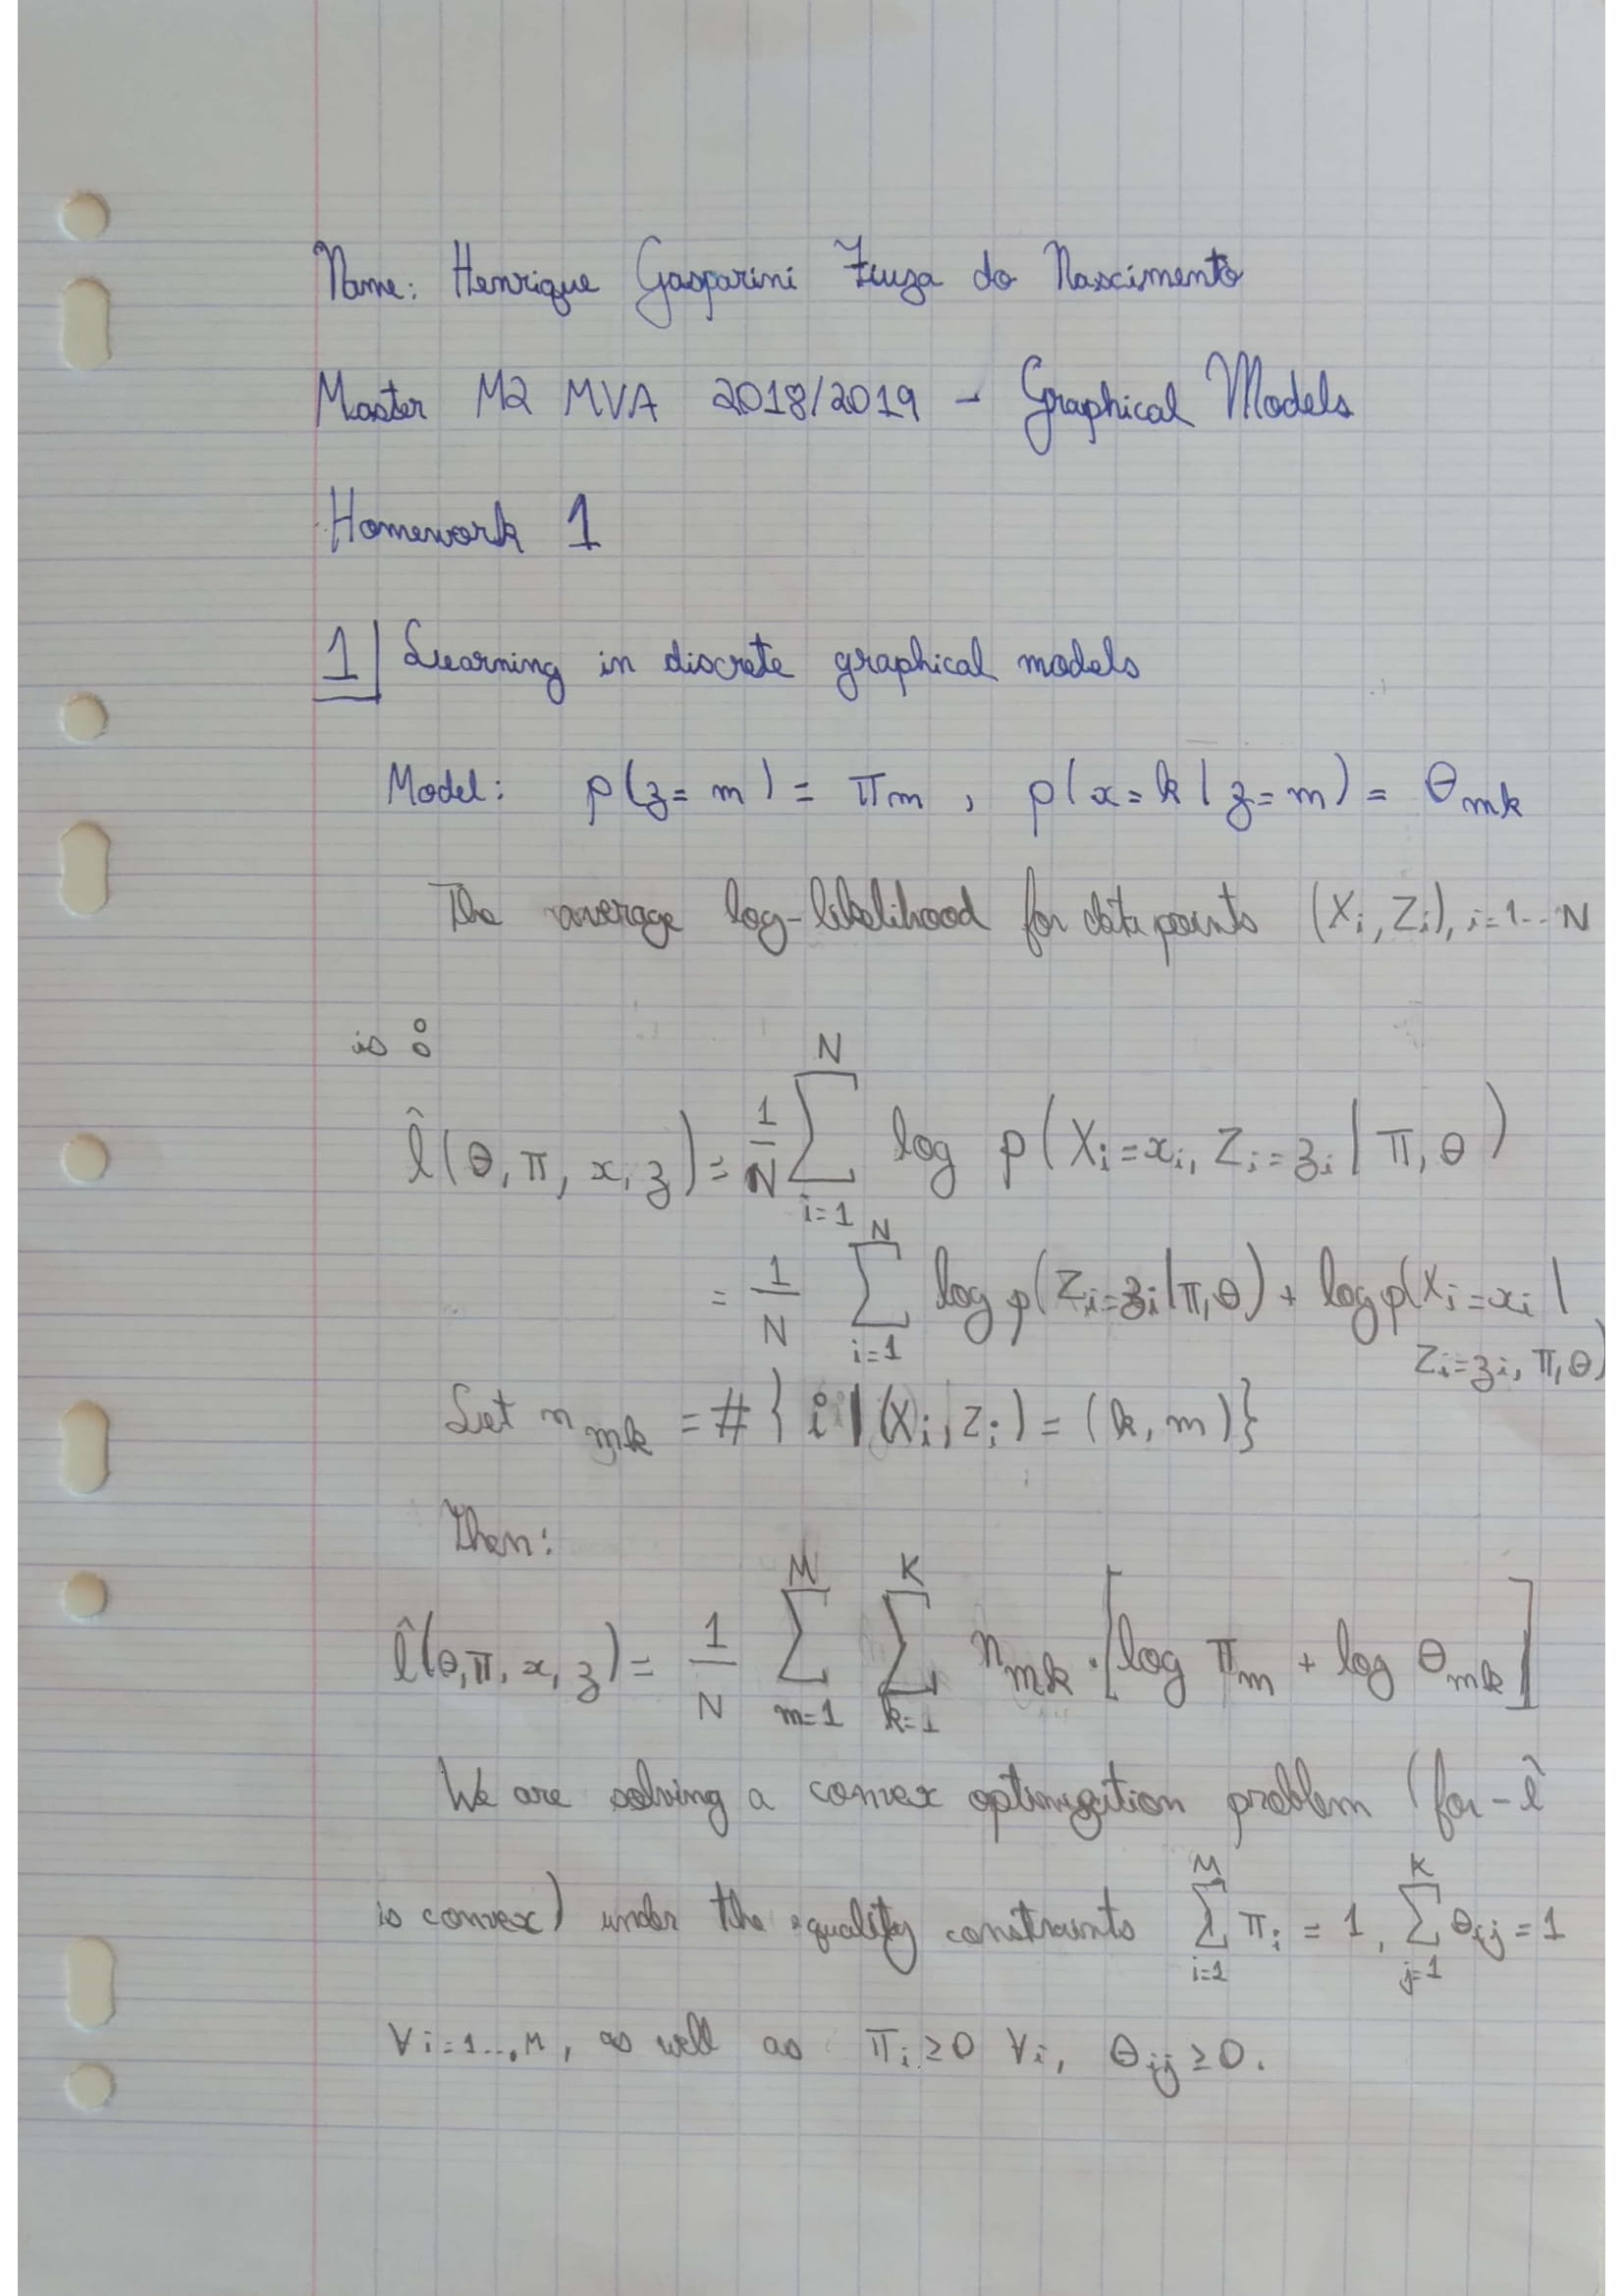 Name: Henrique Gasparini Fiuza do Nascimento
Master M2 MVA 2018/2019 - Graphical Models
Homework 1
1 Learning in discrete graphical models
Model: p(z=m) = π_m , p(x=k | z=m) = θ_mk
The average log-likelihood for data points (X_i, Z_i), i=1...N
is :
l̂(θ, π, x, z) = 1/N ∑_{i=1}^{N} log p(X_i=x_i, Z_i=z_i | π, θ)
= 1/N ∑_{i=1}^{N} log p(Z_i=z_i | π, θ) + log p(X_i=x_i |
Z_i=z_i, π, θ)
Let n_mk = # { i | (X_i, Z_i) = (k, m)}
Then:
l̂(θ, π, x, z) = 1/N ∑_{m=1}^{M} ∑_{k=1}^{K} n_mk · [log π_m + log θ_mk]
We are solving a convex optimization problem (for -l̂
is convex) under the equality constraints ∑_{i=1}^{M} π_i = 1, ∑_{j=1}^{K} θ_ij = 1
∀i=1..,M, as well as π_i ≥ 0 ∀i, θ_ij ≥ 0.